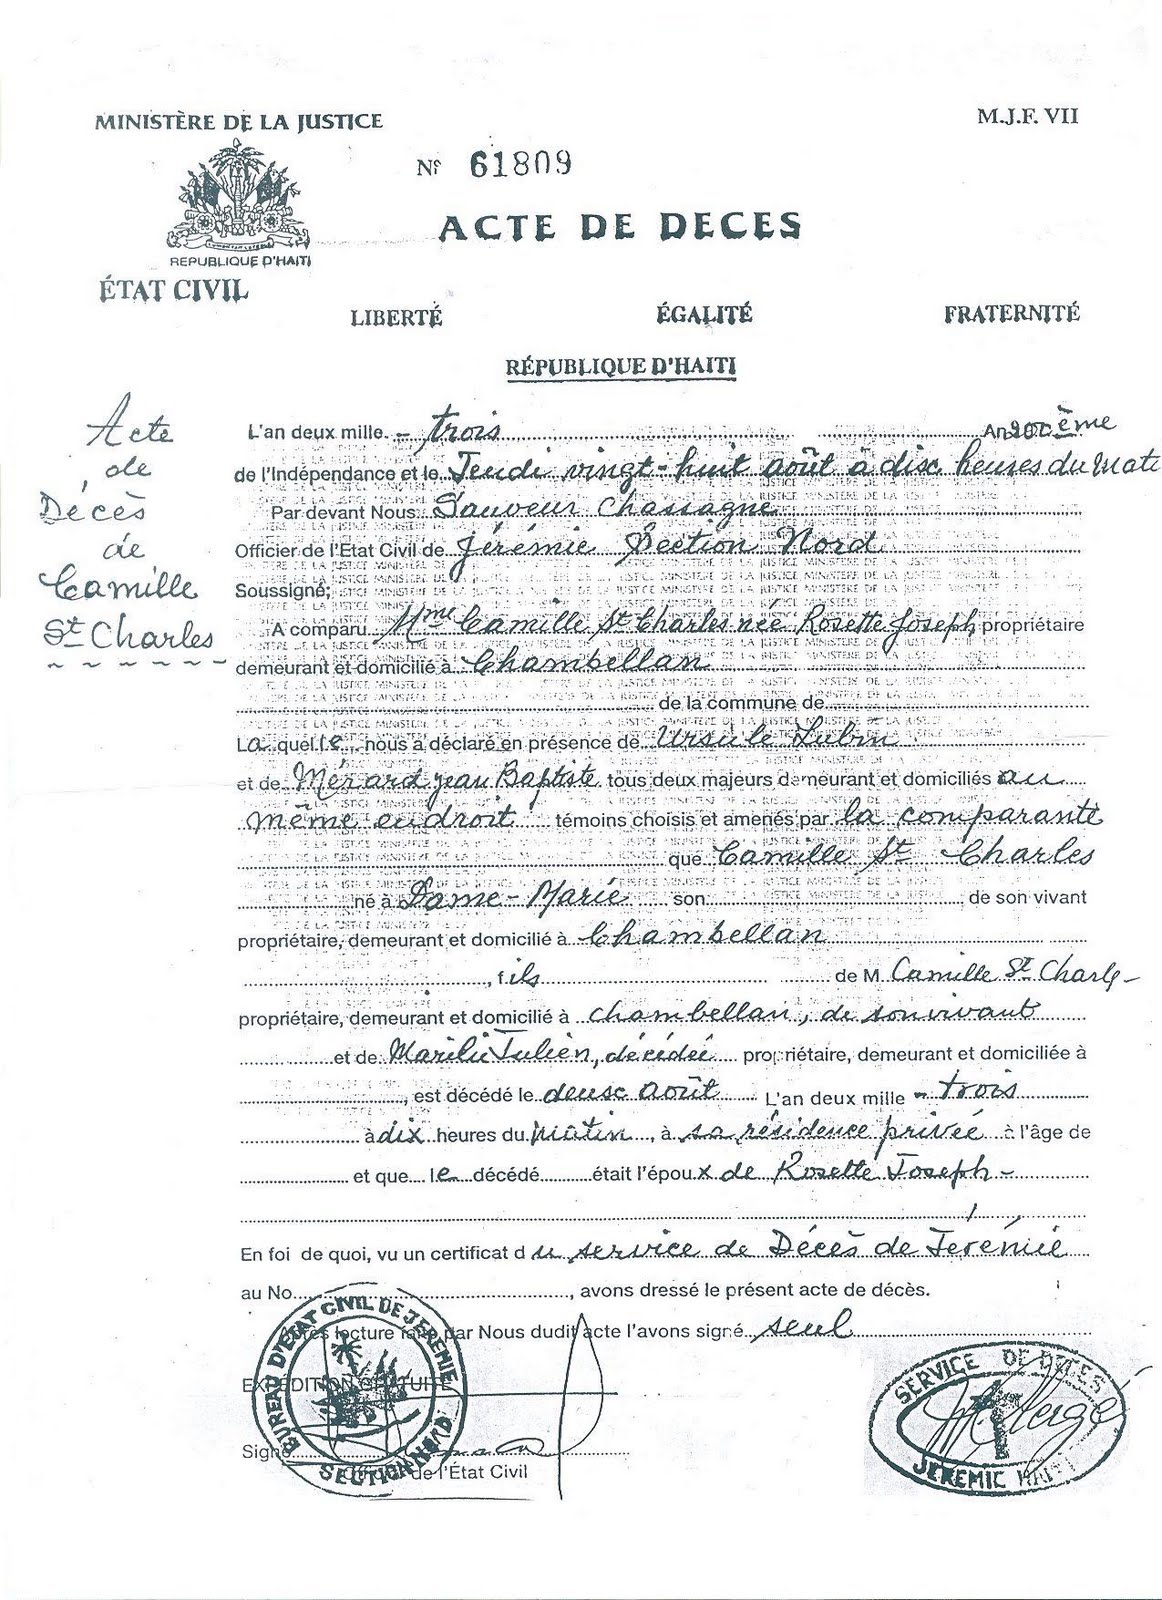 MINISTÈRE DE LA JUSTICE
M.J.F. VII
Nº 61809
ACTE DE DECES
REPUBLIQUE D'HAITI
ÉTAT CIVIL
LIBERTÉ ÉGALITÉ FRATERNITÉ
RÉPUBLIQUE D'HAITI
Acte
de
Décès
de
Camille
St Charles
L'an deux mille - trois An 200ème
de l'Indépendance et le Jeudi vingt-huit août à dix heures du Mati
Par devant Nous Sauveur Chassagne
Officier de l'Etat Civil de Jérémie Section Nord
Soussigné;
A comparu Mme Camille St Charles née Rosette Joseph, propriétaire
demeurant et domicilié à Chambellan
de la commune de
La quelle nous a déclaré en présence de Ursule Lubin
et de Mérard Jean Baptiste tous deux majeurs demeurant et domiciliés au
même endroit témoins choisis et amenés par la comparante
que Camille St Charles
né à Dame-Marie son de son vivant
propriétaire, demeurant et domicilié à Chambellan
, fils de M Camille St Charle -
propriétaire, demeurant et domicilié à chambellan, de son vivant
et de Marilie Julien, décédée propriétaire, demeurant et domiciliée à
, est décédé le deux août L'an deux mille - trois
à dix heures du matin, à sa résidence privée à l'âge de
et que le décédé était l'époux de Rosette Joseph -
En foi de quoi, vu un certificat du service de Décès de Jérémie
au No , avons dressé le présent acte de décès.
Après lecture faite par Nous dudit acte l'avons signé seul
EXPÉDITION GRATUITE
Signé
Officier de l'État Civil
BUREAU D'ETAT CIVIL DE JEREMIE
SECTION NORD
SERVICE DE DECES
JEREMIE HAITI